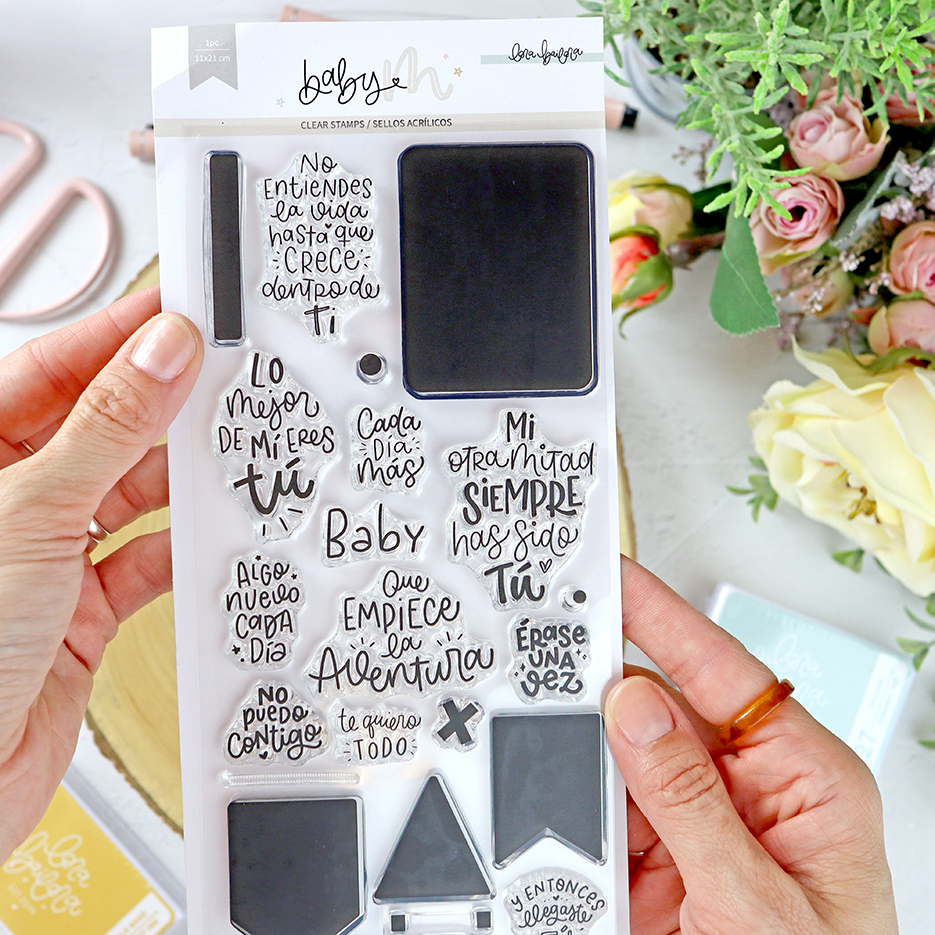 1pc
11x21 cm
baby M
lora bailora
CLEAR STAMPS / SELLOS ACRÍLICOS
No
ENTIENDES
la vida
hasta que
CRECE
dentro de
Ti
LO
mejor
DE MÍ ERES
tú
Cada
DÍA
más
Mi
otra mitad
SIEMPRE
has sido
TÚ
Baby
ALGO
nuevo
CADA
DÍA
Que
EMPIECE
la
Aventura
ÉRASE
UNA
vez
NO
PUEDO
CONTIGO
te quiero
TODO
Y ENTONCES
llegaste
lora
bailora
lora
bailora